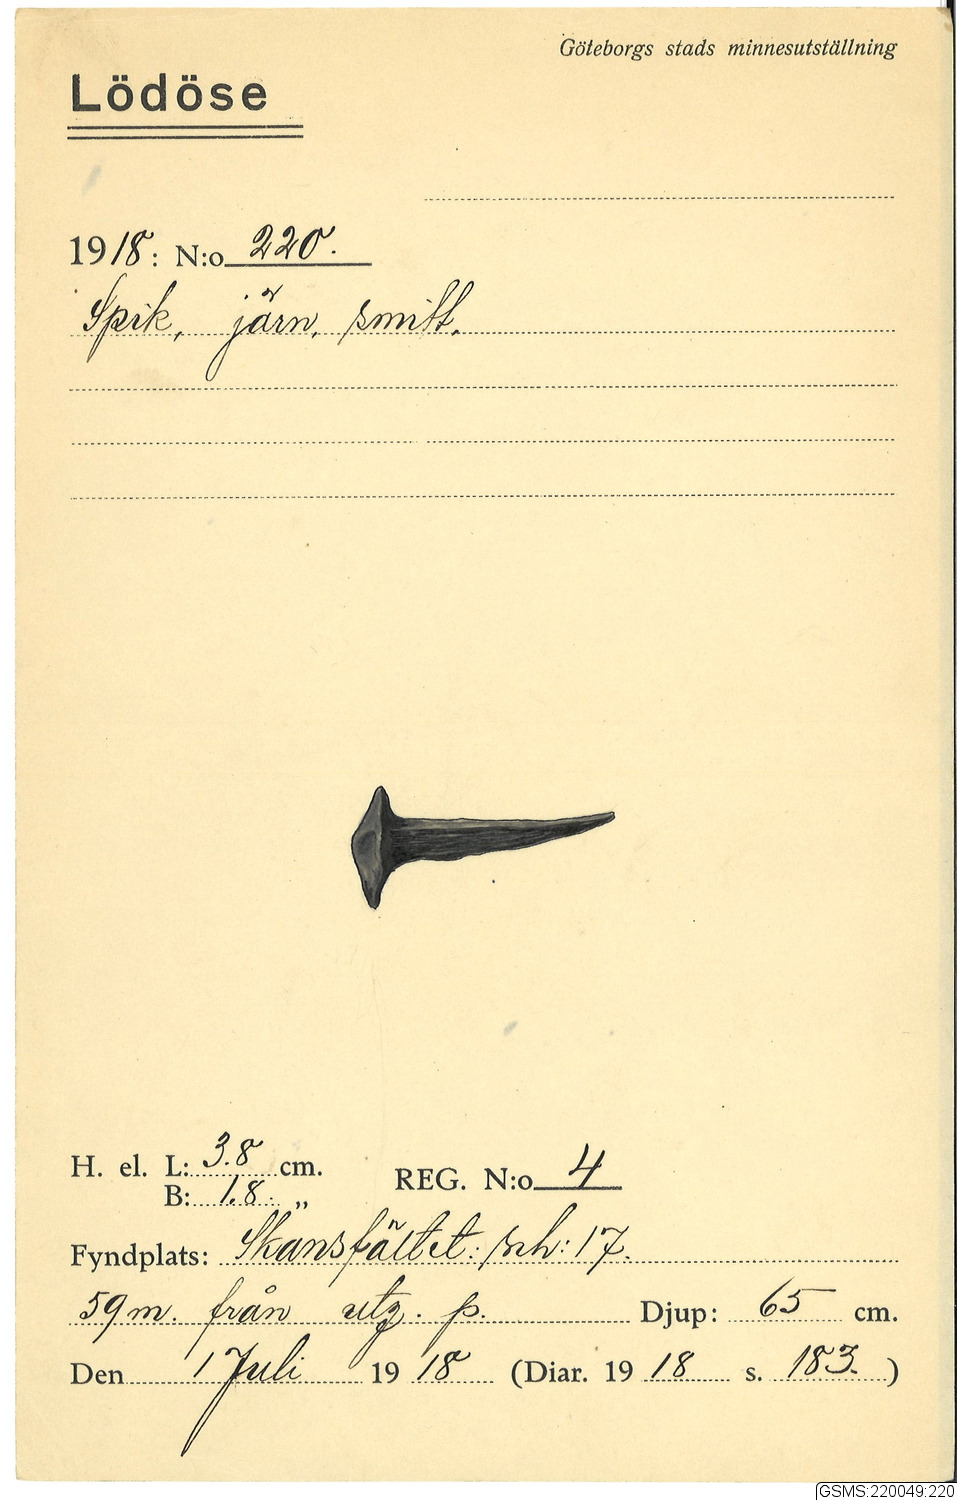 Göteborgs stads minnesutställning
Lödöse
1918: N:o 220.
Spik, järn, smitt.
H. el. L: 3.8 cm.
B: 1.8. „
REG. N:o 4
Fyndplats: Skansfältet: sch: 17.
59 m. från utg. p. Djup: 65 cm.
Den 1 Juli 1918 (Diar. 1918 s. 183.)
GSMS:220049:220